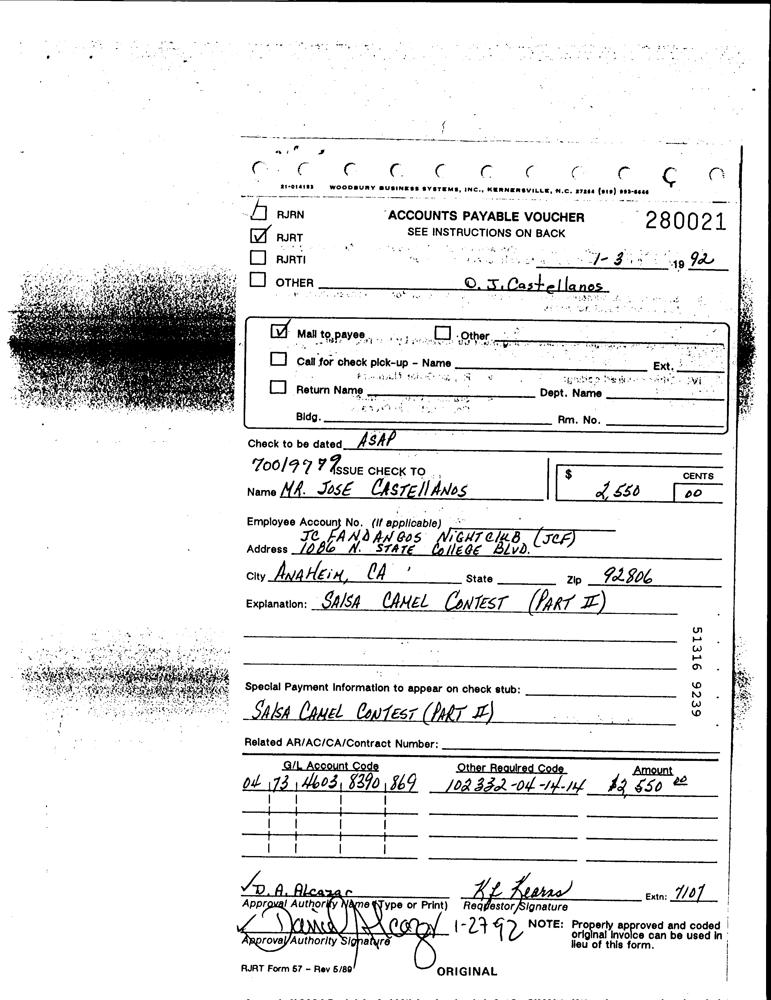 21-014183 WOODBURY BUSINESS SYSTEMS, INC., KERNERSVILLE, N.C. 27284 (919) 993-6666
RJRN ACCOUNTS PAYABLE VOUCHER 280021
RJRT SEE INSTRUCTIONS ON BACK
RJRTI 1-3 19 92
OTHER O. J. Castellanos
Mail to payee Other
Call for check pick-up - Name Ext.
Return Name Dept. Name
Bldg. Rm. No.
Check to be dated ASAP
ISSUE CHECK TO $ CENTS
Name MR. JOSE CASTELLANOS 2,550 00
Employee Account No. (If applicable)
JC FANDANGOS NIGHTCLUB (JCF)
Address 1086 N. STATE COLLEGE BLVD.
City ANAHEIM, CA State Zip 92806
Explanation: SALSA CAMEL CONTEST (PART II)
51316 9239
Special Payment Information to appear on check stub:
SALSA CAMEL CONTEST (PART II)
Related AR/AC/CA/Contract Number:
G/L Account Code Other Required Code Amount
04 73 4603 8390 869 102332-04-14-14 $2,550 00
D. A. Alcazar K L Kearns Extn: 7107
Approval Authority Name (Type or Print) Requestor Signature
Daniel Alcazar 1-27 92 NOTE: Properly approved and coded
original invoice can be used in
lieu of this form.
Approval Authority Signature
RJRT Form 57 - Rev 5/89 ORIGINAL